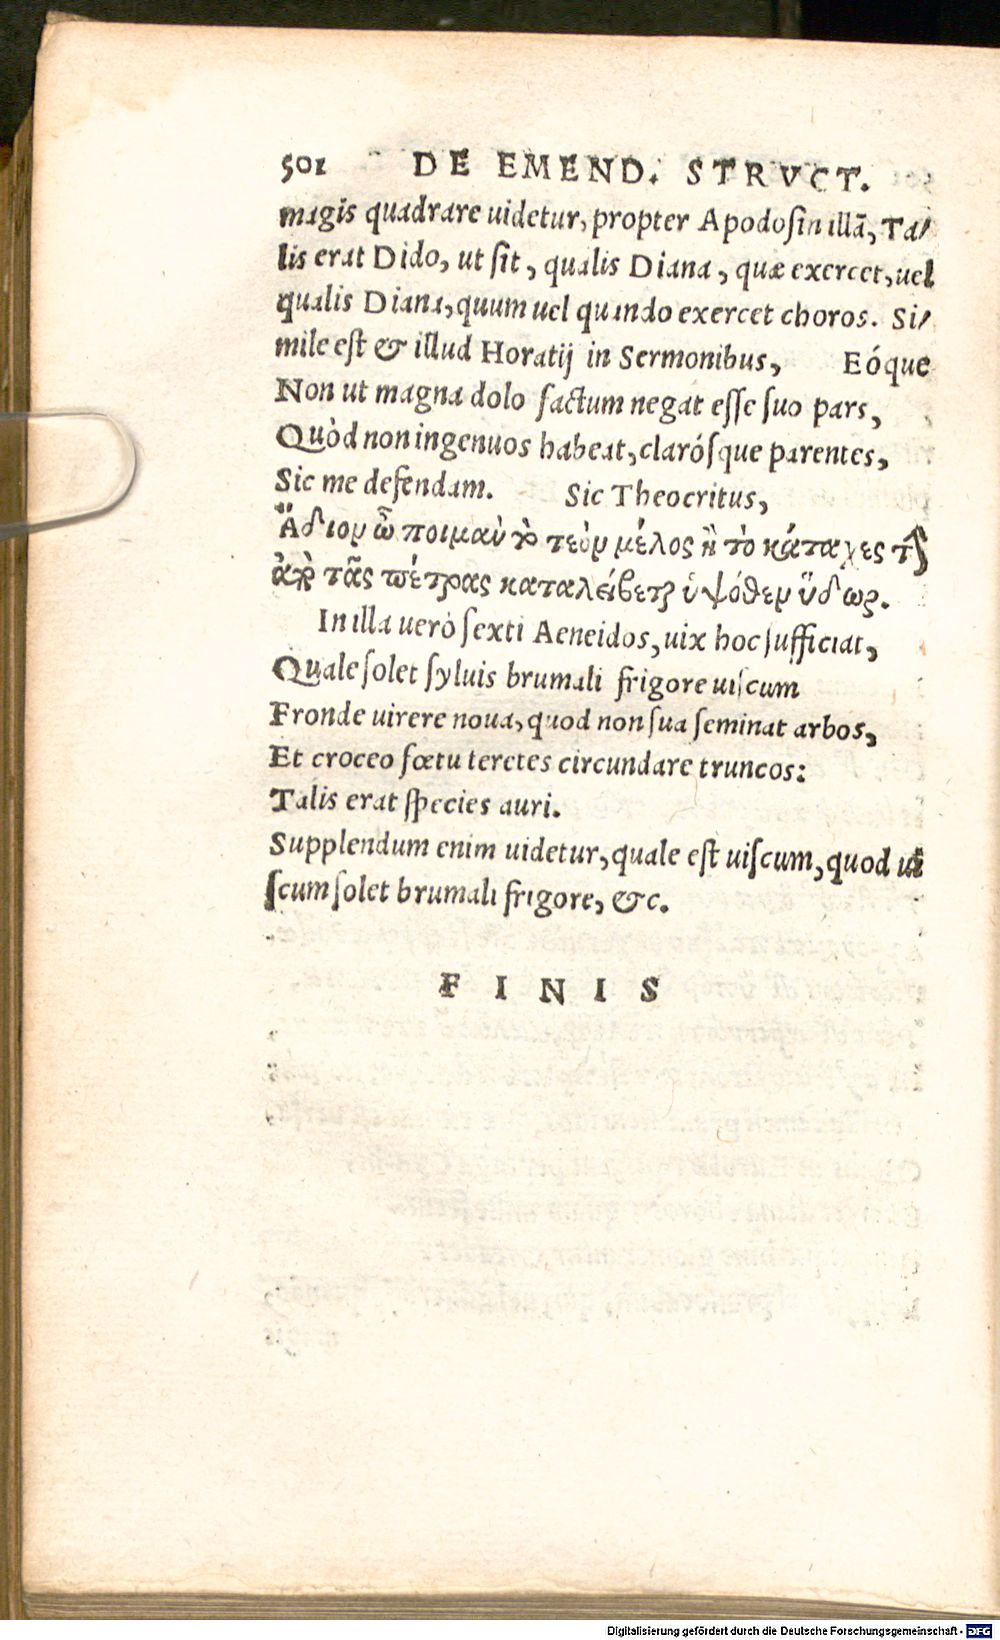 501 DE EMEND. STRVCT.
magis quadrare uidetur, propter Apodosin illā, Ta/
lis erat Dido, ut sit, qualis Diana, quæ exercet, uel
qualis Diana, quum uel quando exercet choros. Si/
mile est & illud Horatij in Sermonibus, Eóque
Non ut magna dolo factum negat esse suo pars,
Quòd non ingenuos habeat, clarósque parentes,
Sic me defendam. Sic Theocritus,
Ἅδιον ὦ ποιμὰν τὸ τεὸν μέλος ἢ τὸ κάταχες τῆν
ἀπὸ τᾶς πέτρας καταλείβεται ὑψόθεν ὕδωρ.
In illa uerò sexti Aeneidos, uix hoc sufficiat,
Quale solet syluis brumali frigore uiscum
Fronde uirere noua, quod non sua seminat arbos,
Et croceo fœtu teretes circundare truncos:
Talis erat species auri.
Supplendum enim uidetur, quale est uiscum, quod ui
scum solet brumali frigore, &c.
FINIS
Digitalisierung gefördert durch die Deutsche Forschungsgemeinschaft - DFG